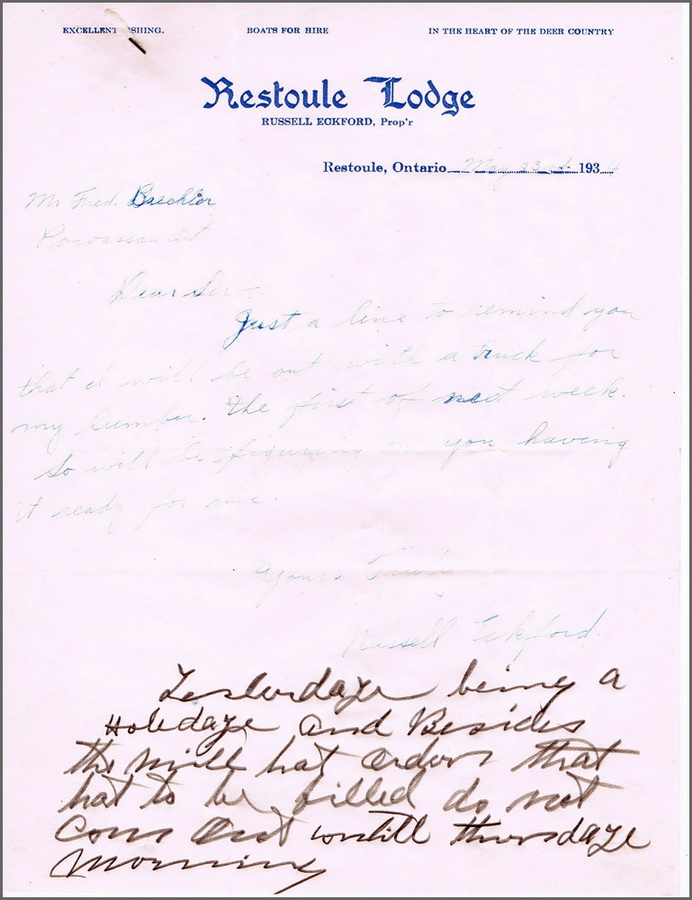 EXCELLENT FISHING. BOATS FOR HIRE IN THE HEART OF THE DEER COUNTRY
Restoule Lodge
RUSSELL ECKFORD, Prop'r
Restoule, Ontario May 23rd 1934
Mr Fred. Baechler
Powassan Ont
Dear Sir -
Just a line to remind you
that I will be out with a truck for
my lumber. the first of next week.
So will be figuring on you having
it ready for me.
Yours Truly
Russell Eckford.
Yesterdaye being a
Holedaye and Besides
the mill hat orders that
hat to be filled do not
Com Out untill thursdaye
morning